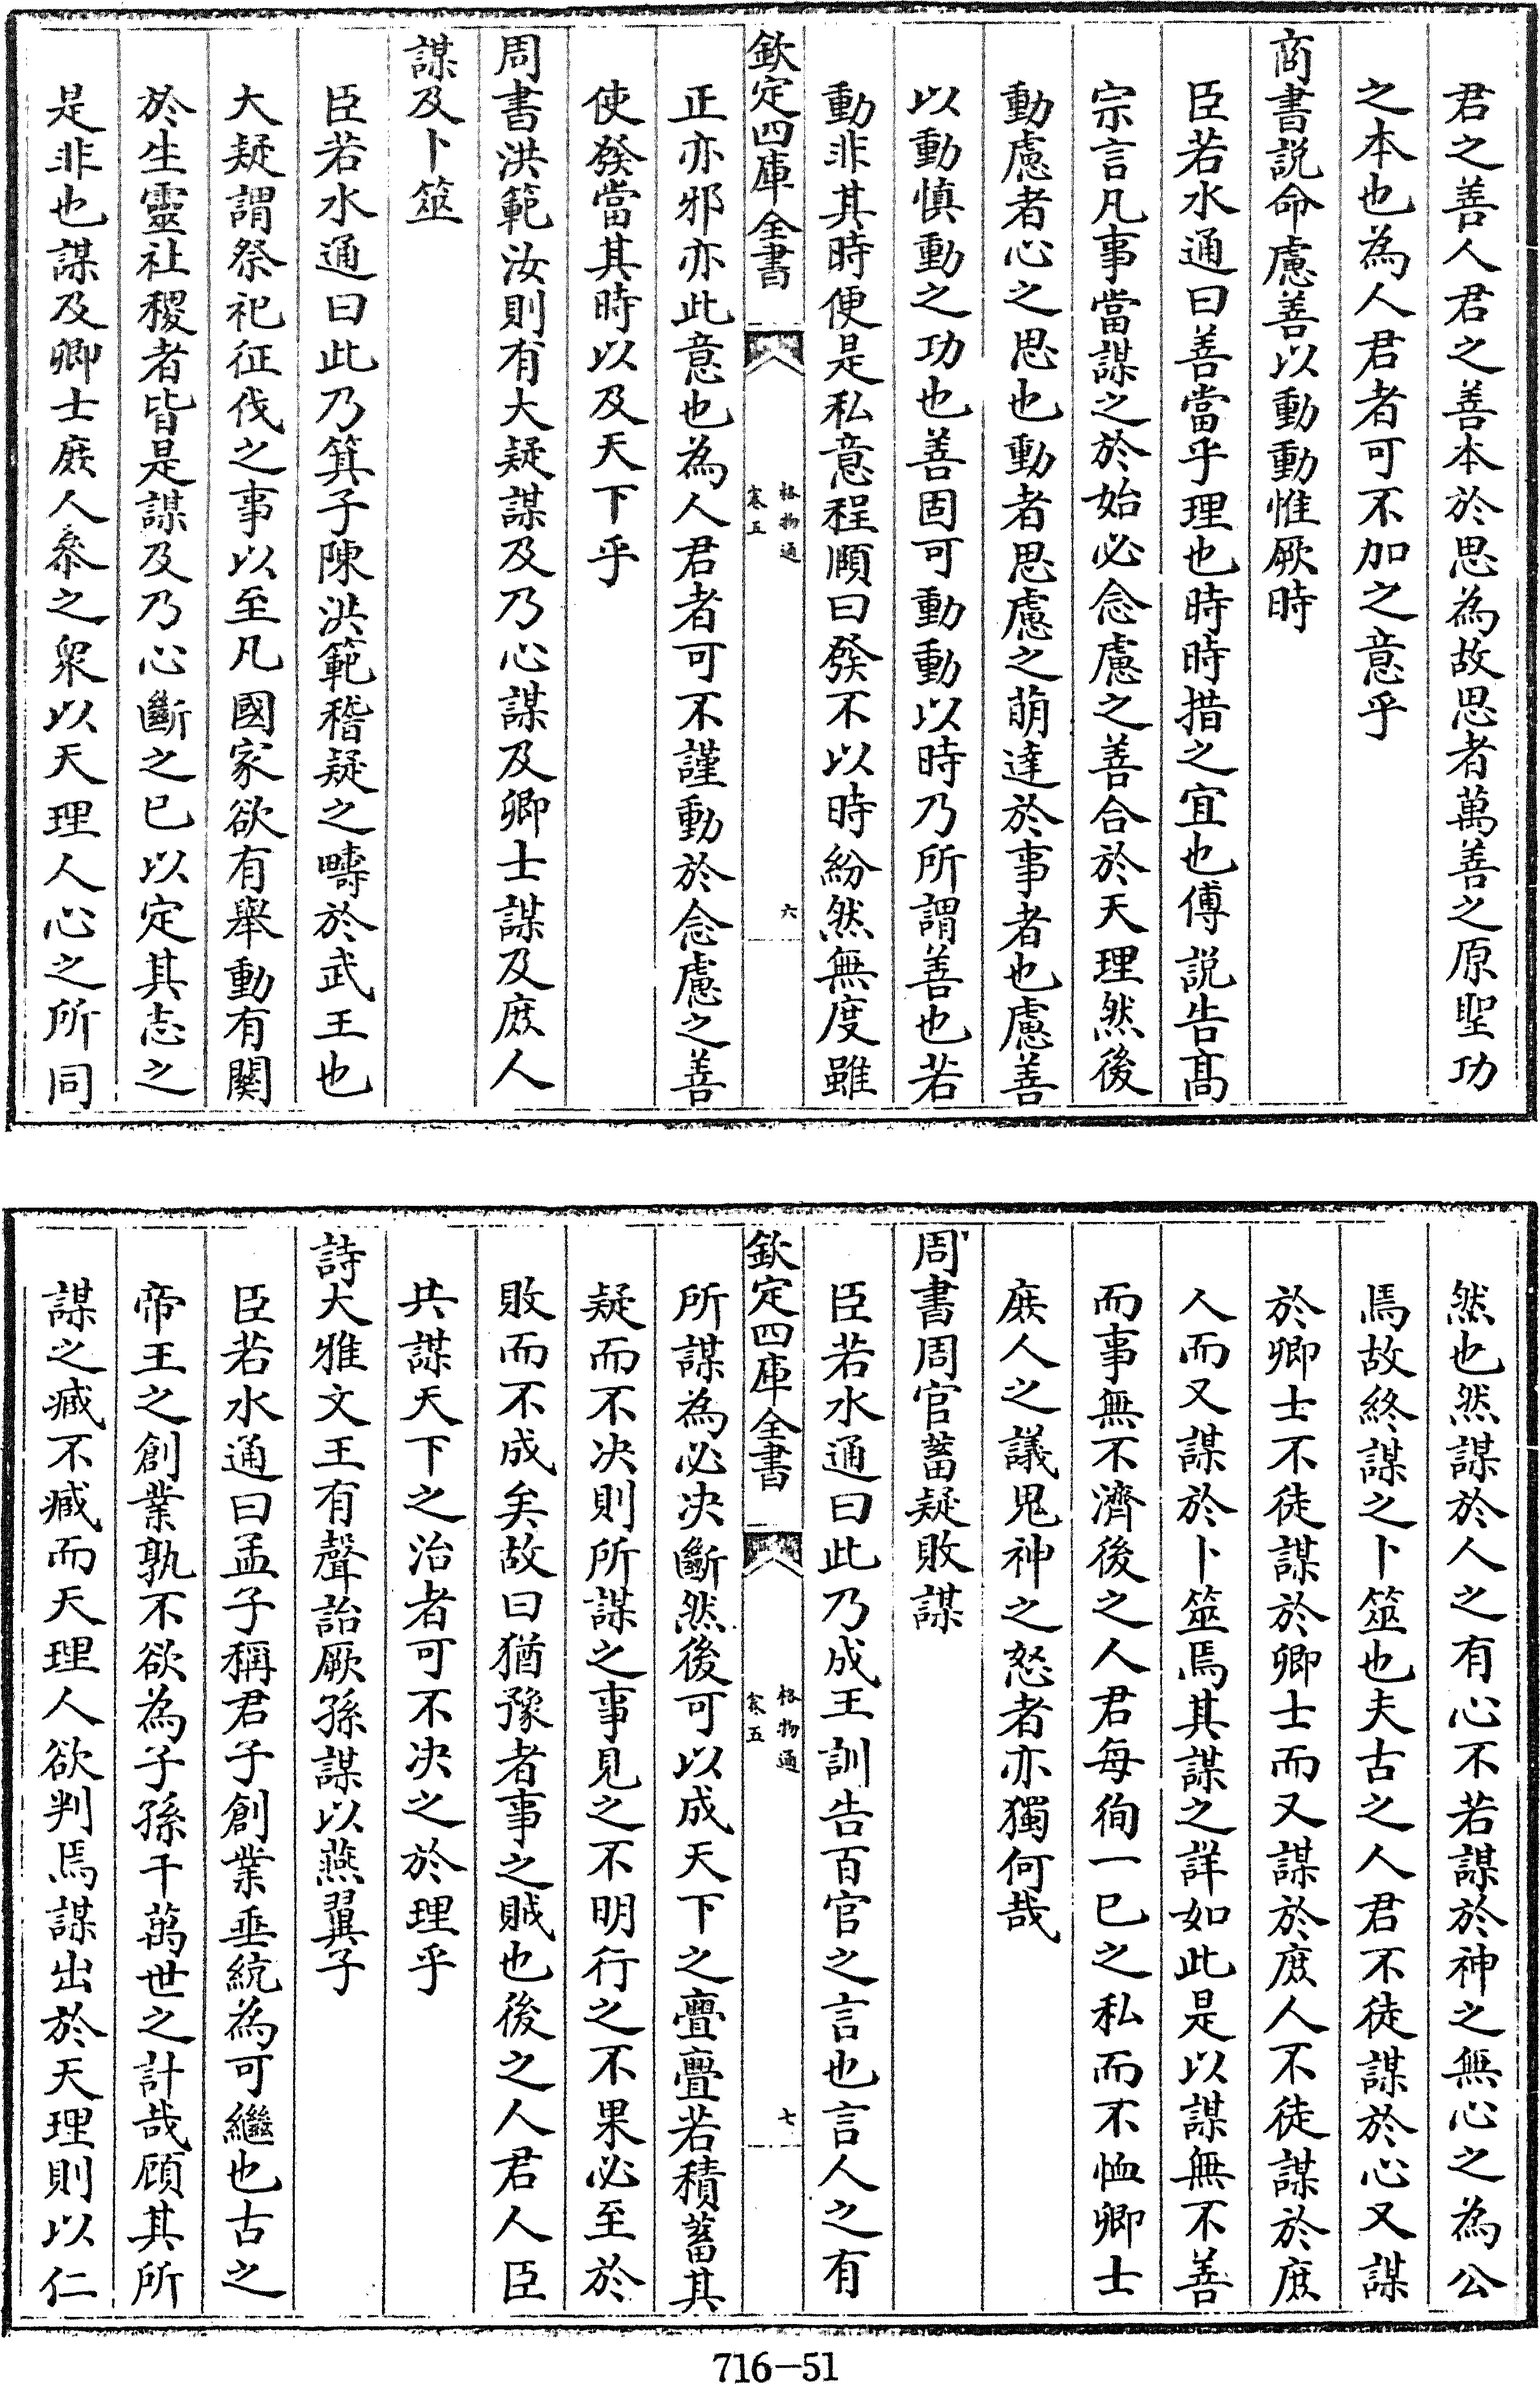 君之善人君之善本於思為故思者萬善之原聖功
之本也為人君者可不加之意乎
商書説命慮善以動動惟厥時
臣若水通曰善當乎理也時時措之宜也傅説告髙
宗言凡事當謀之於始必念慮之善合於天理然後
動慮者心之思也動者思慮之萌達於事者也慮善
以動慎動之功也善固可動動以時乃所謂善也若
動非其時便是私意程頤曰發不以時紛然無度雖
欽定四庫全書
格物通
卷五
六
正亦邪亦此意也為人君者可不謹動於念慮之善
使發當其時以及天下乎
周書洪範汝則有大疑謀及乃心謀及卿士謀及庶人
謀及卜筮
臣若水通曰此乃箕子陳洪範稽疑之疇於武王也
大疑謂祭祀征伐之事以至凡國家欲有舉動有關
於生靈社稷者皆是謀及乃心斷之已以定其志之
是非也謀及卿士庶人叅之衆以天理人心之所同
然也然謀於人之有心不若謀於神之無心之為公
焉故終謀之卜筮也夫古之人君不徒謀於心又謀
於卿士不徒謀於卿士而又謀於庶人不徒謀於庶
人而又謀於卜筮焉其謀之詳如此是以謀無不善
而事無不濟後之人君每徇一已之私而不恤卿士
庶人之議鬼神之怒者亦獨何哉
周書周官蓄疑敗謀
臣若水通曰此乃成王訓告百官之言也言人之有
欽定四庫全書
格物通
卷五
七
所謀為必决斷然後可以成天下之亹亹若積蓄其
疑而不决則所謀之事見之不明行之不果必至於
敗而不成矣故曰猶豫者事之賊也後之人君人臣
共謀天下之治者可不决之於理乎
詩大雅文王有聲詒厥孫謀以燕翼子
臣若水通曰孟子稱君子創業垂統為可繼也古之
帝王之創業孰不欲為子孫千萬世之計哉顧其所
謀之臧不臧而天理人欲判焉謀出於天理則以仁
716-51